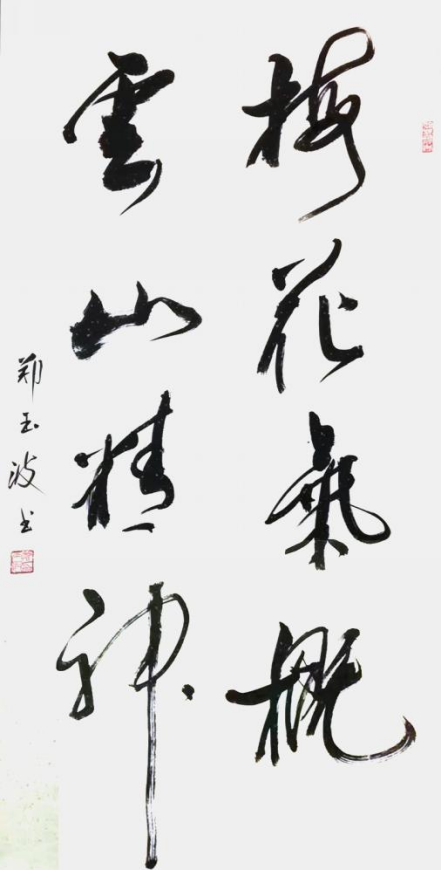 梅花氣概
雲山精神
郑玉波书